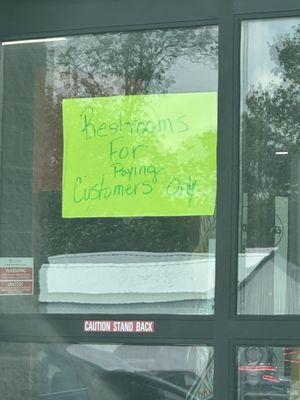 Restrooms
For
Paying
Customers Only
WARNING
CAUTION STAND BACK